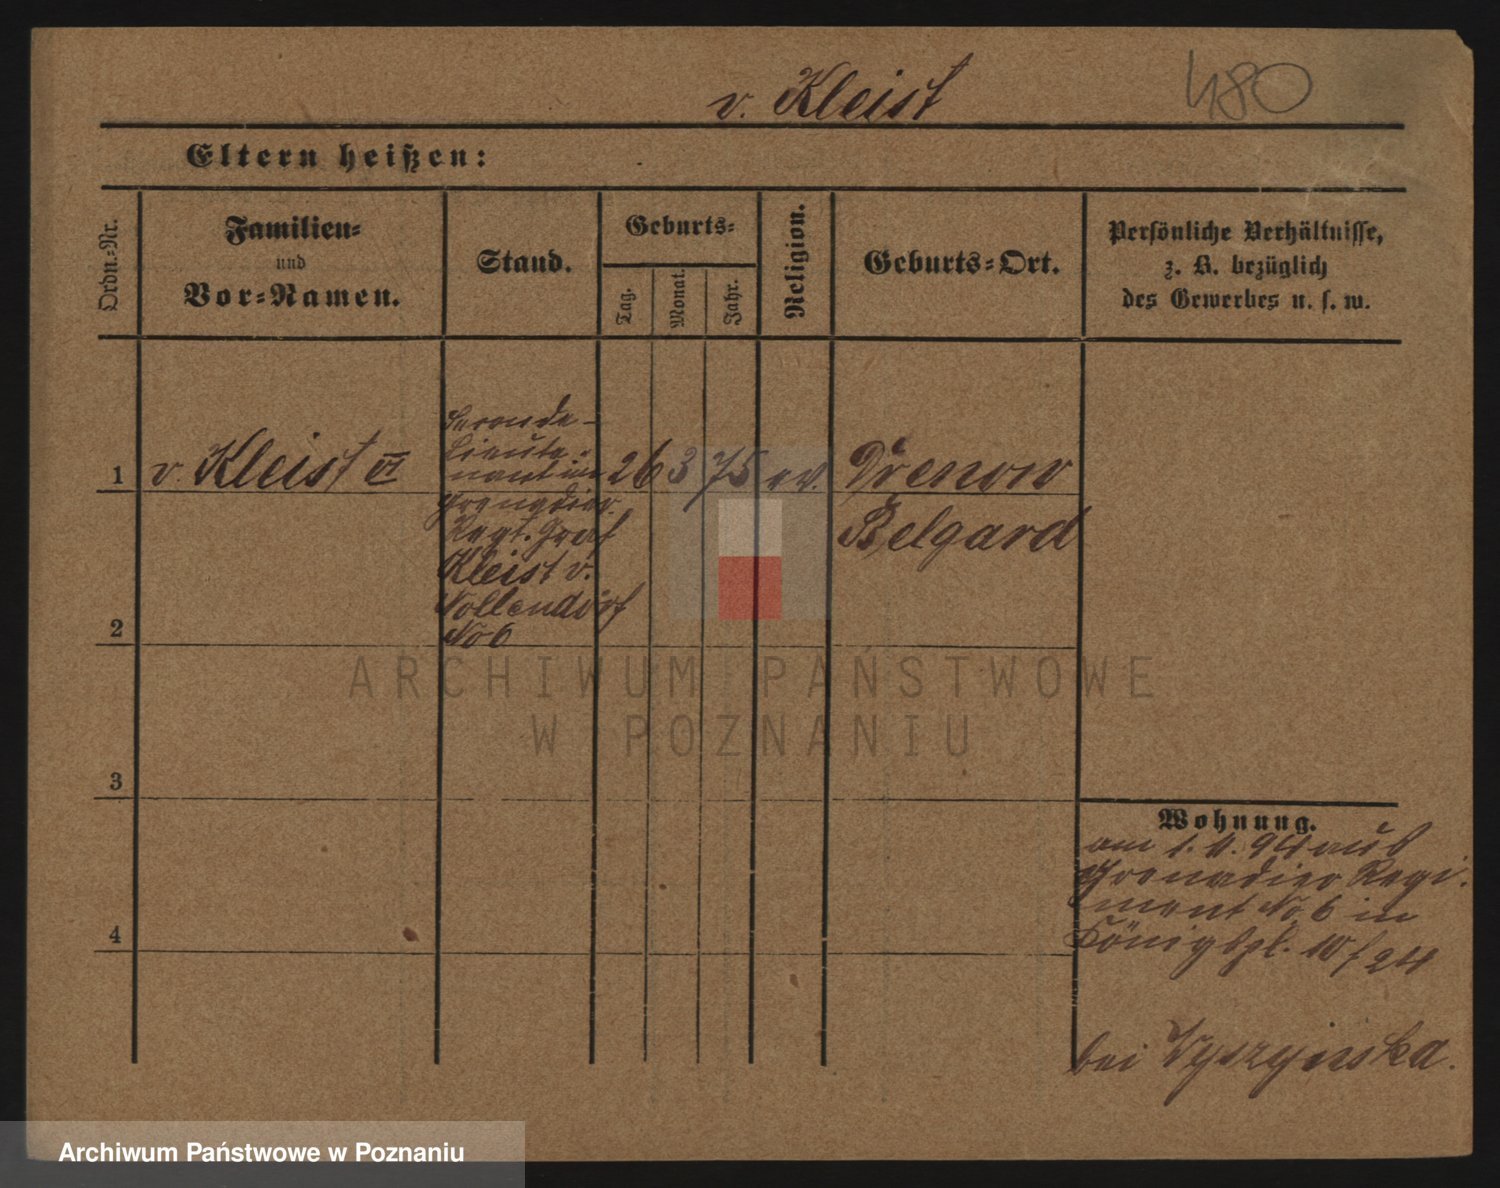 v. Kleist
480
Eltern heißen:
Ordn.-Nr.
Familien-
und
Vor-Namen.
Stand.
Geburts-
Tag.
Monat.
Jahr.
Religion.
Geburts-Ort.
Persönliche Verhältnisse,
z. B. bezüglich
des Gewerbes u. s. w.
1
v. Kleist VI
Seconde-
Lieute-
nant im
Grenadier
Regt. Graf
Kleist v.
Nollendorf
No 6
26
3
75
ev.
Drenow
Belgard
2
3
4
Wohnung.
am 1. 11. 94 aus
Grenadier Regi-
ment No 6 in
Königspl. 10/24
bei Wyszynska.
ARCHIWUM PAŃSTWOWE
W POZNANIU
Archiwum Państwowe w Poznaniu